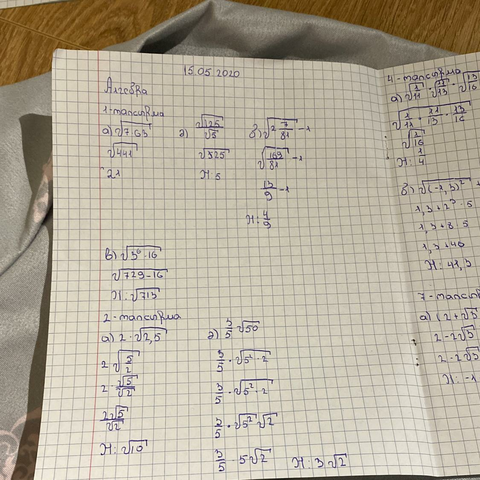 15.05.2020
Алгебра
1-тапсырма
а) √7·63
√441
21
г) √125/√5
√525
Ж: 5
б) √2 7/81 - 1
√169/81 - 1
13/9 - 1
Ж: 4/9
в) √3⁶·16
√729-16
Ж: √713
2-тапсырма
а) 2·√2,5
2·√5/2
2·√5/√2
2√5/√2
Ж: √10
г) 3/5·√50
3/5·√5²·2
3/5·√5²·2
3/5·√5²·√2
3/5·5√2 Ж: 3√2
4-тапсырма
а) √1/11·√11/13·√13/16
√1/11·11/13·13/16
√1/16
Ж: 1/4
б) √(-1,3)²
1,3+2³·5
1,3+8·5
1,3+40
Ж: 41,3
7-тапсырма
а) (2+√3
2-2√3
2-2√3
Ж: -1